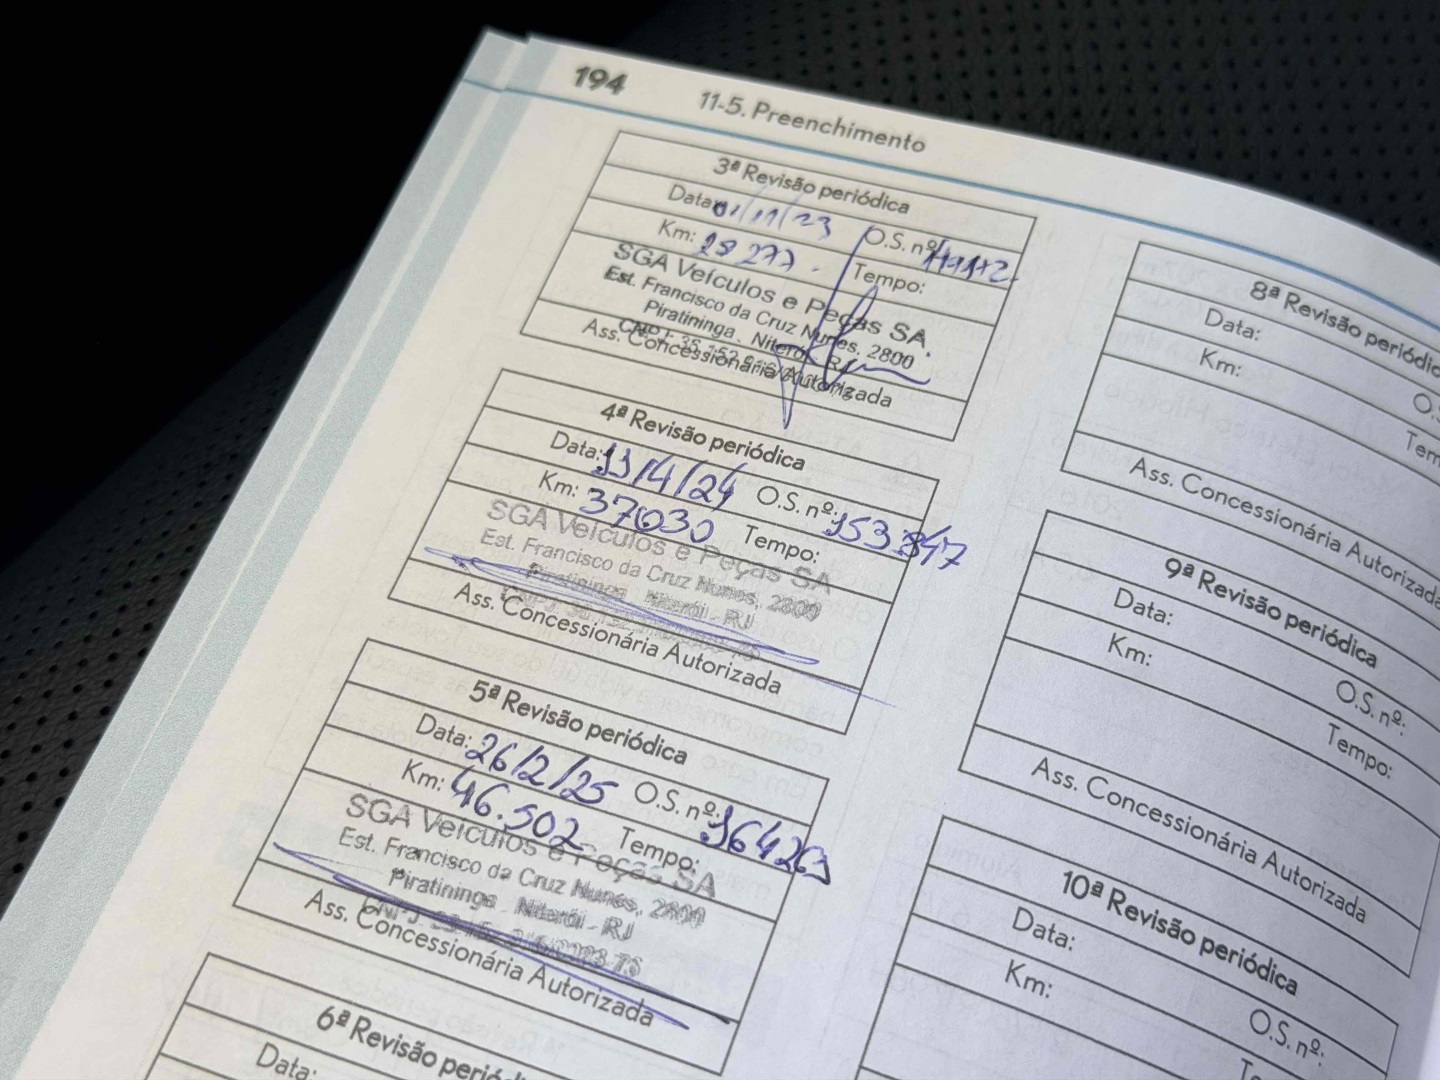 194
11-5. Preenchimento
3ª Revisão periódica
Data: 01/11/23 O.S. nº
Km: 28 277. Tempo:
SGA Veículos e Peças SA.
Est. Francisco da Cruz Nunes, 2800
Piratininga . Niterói - RJ
Ass. Concessionária Autorizada
4ª Revisão periódica
Data: 11/4/24 O.S. nº: 153347
Km: 37030 Tempo:
SGA Veículos e Peças SA
Est. Francisco da Cruz Nunes, 2800
Piratininga . Niterói - RJ
Ass. Concessionária Autorizada
5ª Revisão periódica
Data: 26/2/25 O.S. nº:
Km: 46.502 Tempo:
SGA Veículos e Peças SA
Est. Francisco da Cruz Nunes, 2800
Piratininga . Niterói - RJ
Ass. Concessionária Autorizada
6ª Revisão periódi
Data:
8ª Revisão periódic
Data:
Km: O.S
Tem
Ass. Concessionária Autorizada
9ª Revisão periódica
Data:
Km: O.S. nº:
Tempo:
Ass. Concessionária Autorizada
10ª Revisão periódica
Data:
Km: O.S. nº:
Te